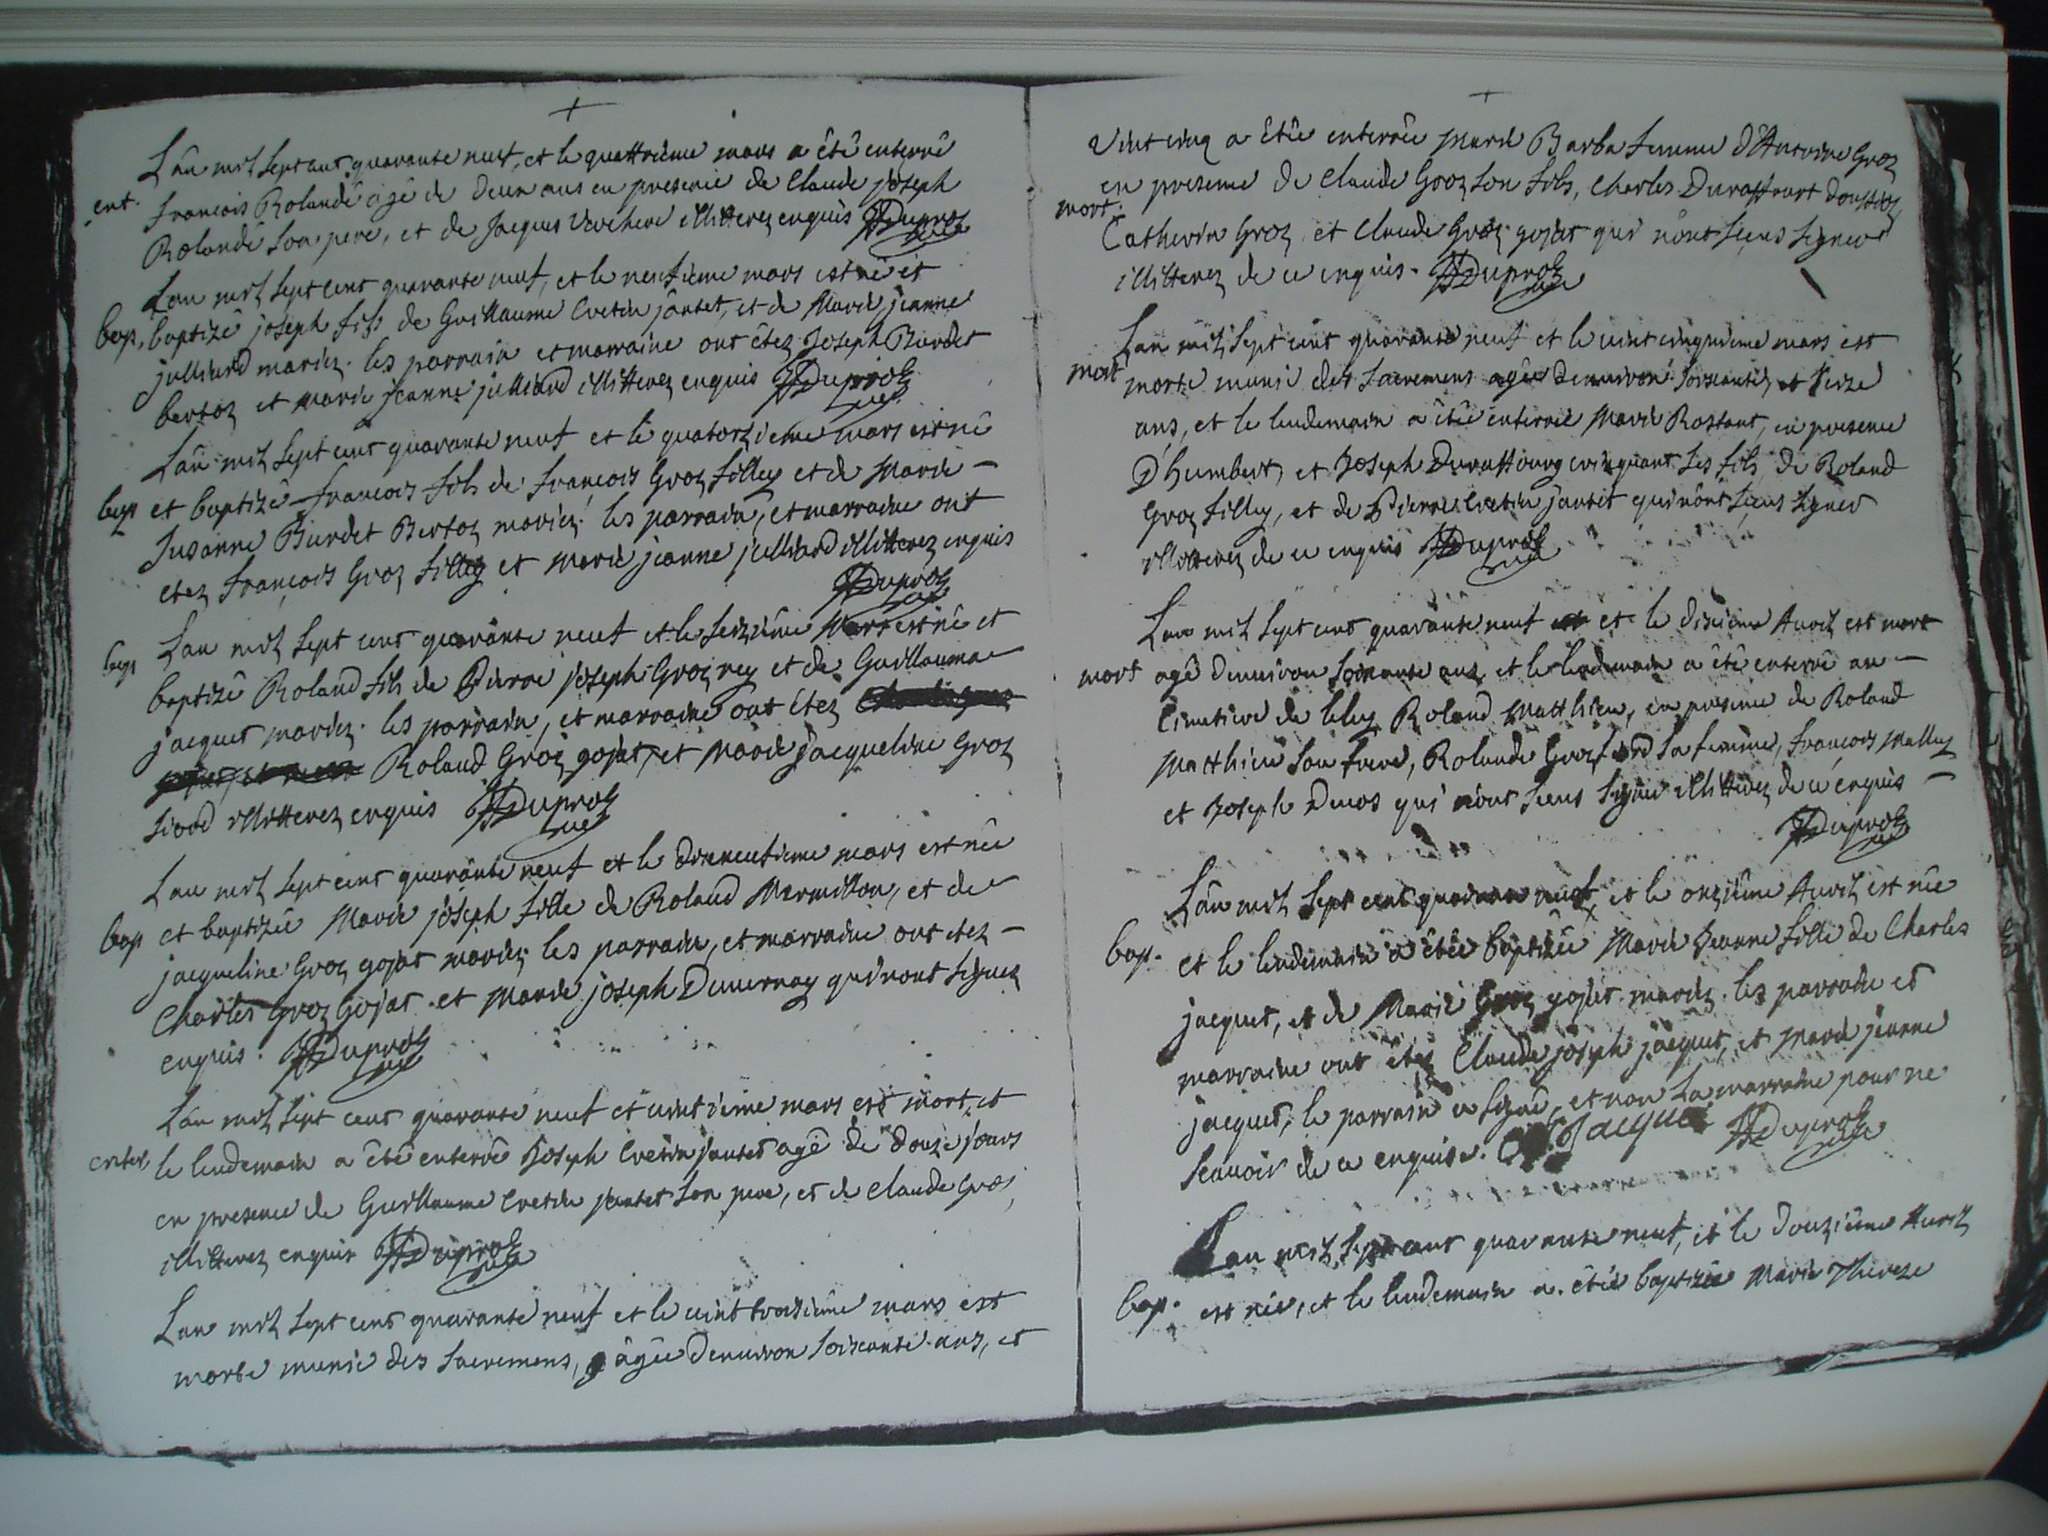 +
Lan mil sept cent quarante neuf, et le quattrieme mars a êté enterrê
ent. francois Rolandê agê de deux ans en presence de Claude joseph
Rolandê son pere, et de Jacques Verchere illitterez enquis Duproz
Lan mil sept cent quarante neuf, et le neufieme mars est né et
bap. baptizê joseph fils de Guillaume Cretin jantet, et de Marie jeanne
julliard mariez. les parrain et marraine ont êtez Joseph Burdet
bertoz et Marie jeanne julliard illitterez enquis Duproz
Lan mil sept cent quarante neuf et le quatorzieme mars est nê
bap et baptizê francois fils de francois Groz filley et de Marie
Susanne Burdet Bertoz mariez. les parrain, et marraine ont
etez francois Groz filley et Marie jeanne julliard illitterez enquis
Duproz
bap Lan mil sept cent quarante neuf et le seizième Mars est nê et
baptizê Roland fils de Pierre joseph Groz rey et de Guillauma
jacquet mariez. les parrain, et marraine ont êtez
Roland Groz gojat, et Marie jacqueline Groz
fiood illitterez enquis Duproz
Lan mil sept cent quarante neuf et le dixneufieme mars est née
bap et baptizée Marie joseph fille de Roland Mermillon, et de
jacqueline Groz gojat mariez. les parrain, et marraine ont etez
Charles Groz Gojat et Marie joseph Duvernay qui n'ont signez
enquis. Duproz
Lan mil sept cent quarante neuf et vintieme mars est mort, et
enter. le lendemain a êté enterrê Joseph Cretin jantet agê de douze jours
en presence de Guillaume Cretin jantet son pere, et de Claude Groz
illitterez enquis Duproz
Lan mil sept cent quarante neuf et le vint troisième mars est
morte munie des sacremens, âgée d'environ soixante ans, et
+
vint cinq a êtée enterrée Marie Barba femme d'Antoine Groz
en presence de Claude Groz son fils, Charles Duraffourt
mort. Catherin Groz et Claude Groz gojat qui n'ont sçeus signer
illitterez de ce enquis. Duproz
Lan mil sept cent quarante neuf et le vint cinquième mars est
mort morte munie des sacremens agée d'environ soixantes et seize
ans, et le lendemain a êtée enterrée Marie Rostant, en presence
D'humbert, et Joseph Duraffourg ses fils, de Roland
Groz filley, et de Pierre Cretin jantet qui n'ont sçeus signer
illitterez de ce enquis Duproz
Lan mil sept cent quarante neuf et le dixième Avril est mort
mort agê d'environ soixante ans, et le lendemain a êté enterrê au
cimetiere de Roland Matthieu, en presence de Roland
Matthieu son frere, Rolande Groz sa femme, francois
et Joseph qui n'ont sceus signer illitterez de ce enquis
Duproz
Lan mil sept cent quarante neuf et le onzième Avril est née
bap. et le lendemain a êtée baptizée Marie Jeanne fille de Charles
jacquet, et de Marie Groz gojat mariez. les parrain et
marraine ont êtez Claude joseph jacquet, et Marie jeanne
jacquet, le parrain a signê, et non la marraine pour ne
scavoir de ce enquise. Jacquet Duproz
Lan mil sept cent quarante neuf, et le douzième Avril
bap. est née, et le lendemain a êtée baptizée Marie Therese